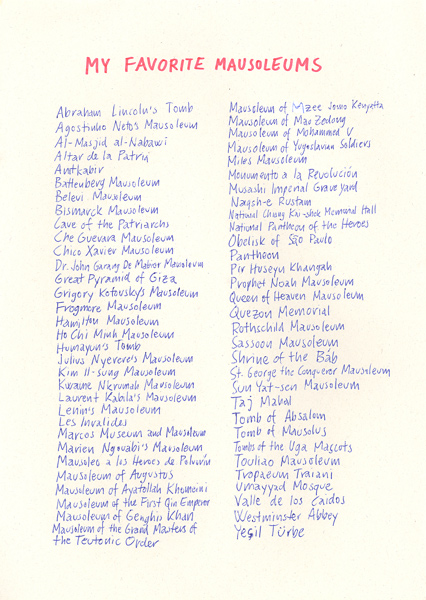 MY FAVORITE MAUSOLEUMS
Abraham Lincoln's Tomb
Agostinho Neto's Mausoleum
Al-Masjid al-Nabawi
Altar de la Patria
Anitkabir
Battenberg Mausoleum
Belevi Mausoleum
Bismarck Mausoleum
Cave of the Patriarchs
Che Guevara Mausoleum
Chico Xavier Mausoleum
Dr. John Garang De Mabior Mausoleum
Great Pyramid of Giza
Grigory Kotovsky's Mausoleum
Frogmore Mausoleum
Hamilton Mausoleum
Ho Chi Minh Mausoleum
Humayun's Tomb
Julius Nyerere's Mausoleum
Kim Il-sung Mausoleum
Kwame Nkrumah Mausoleum
Laurent Kabila's Mausoleum
Lenin's Mausoleum
Les Invalides
Marcos Museum and Mausoleum
Marien Ngouabi's Mausoleum
Mausoleo a los Heroes de Polvorin
Mausoleum of Augustus
Mausoleum of Ayatollah Khomeini
Mausoleum of the First Qin Emperor
Mausoleum of Genghis Khan
Mausoleum of the Grand Masters of
the Teutonic Order
Mausoleum of Mzee Jomo Kenyatta
Mausoleum of Mao Zedong
Mausoleum of Mohammed V
Mausoleum of Yugoslavian Soldiers
Miles Mausoleum
Monumento a la Revolución
Musashi Imperial Graveyard
Naqsh-e Rustam
National Chiang Kai-shek Memorial Hall
National Pantheon of the Heroes
Obelisk of São Paulo
Pantheon
Pir Huseyn Khanqah
Prophet Noah Mausoleum
Queen of Heaven Mausoleum
Quezon Memorial
Rothschild Mausoleum
Sassoon Mausoleum
Shrine of the Báb
St. George the Conqueror Mausoleum
Sun Yat-sen Mausoleum
Taj Mahal
Tomb of Absalom
Tomb of Mausolus
Tombs of the Uga Mascots
Touliao Mausoleum
Tropaeum Traiani
Umayyad Mosque
Valle de los Caidos
Westminster Abbey
Yeşil Türbe